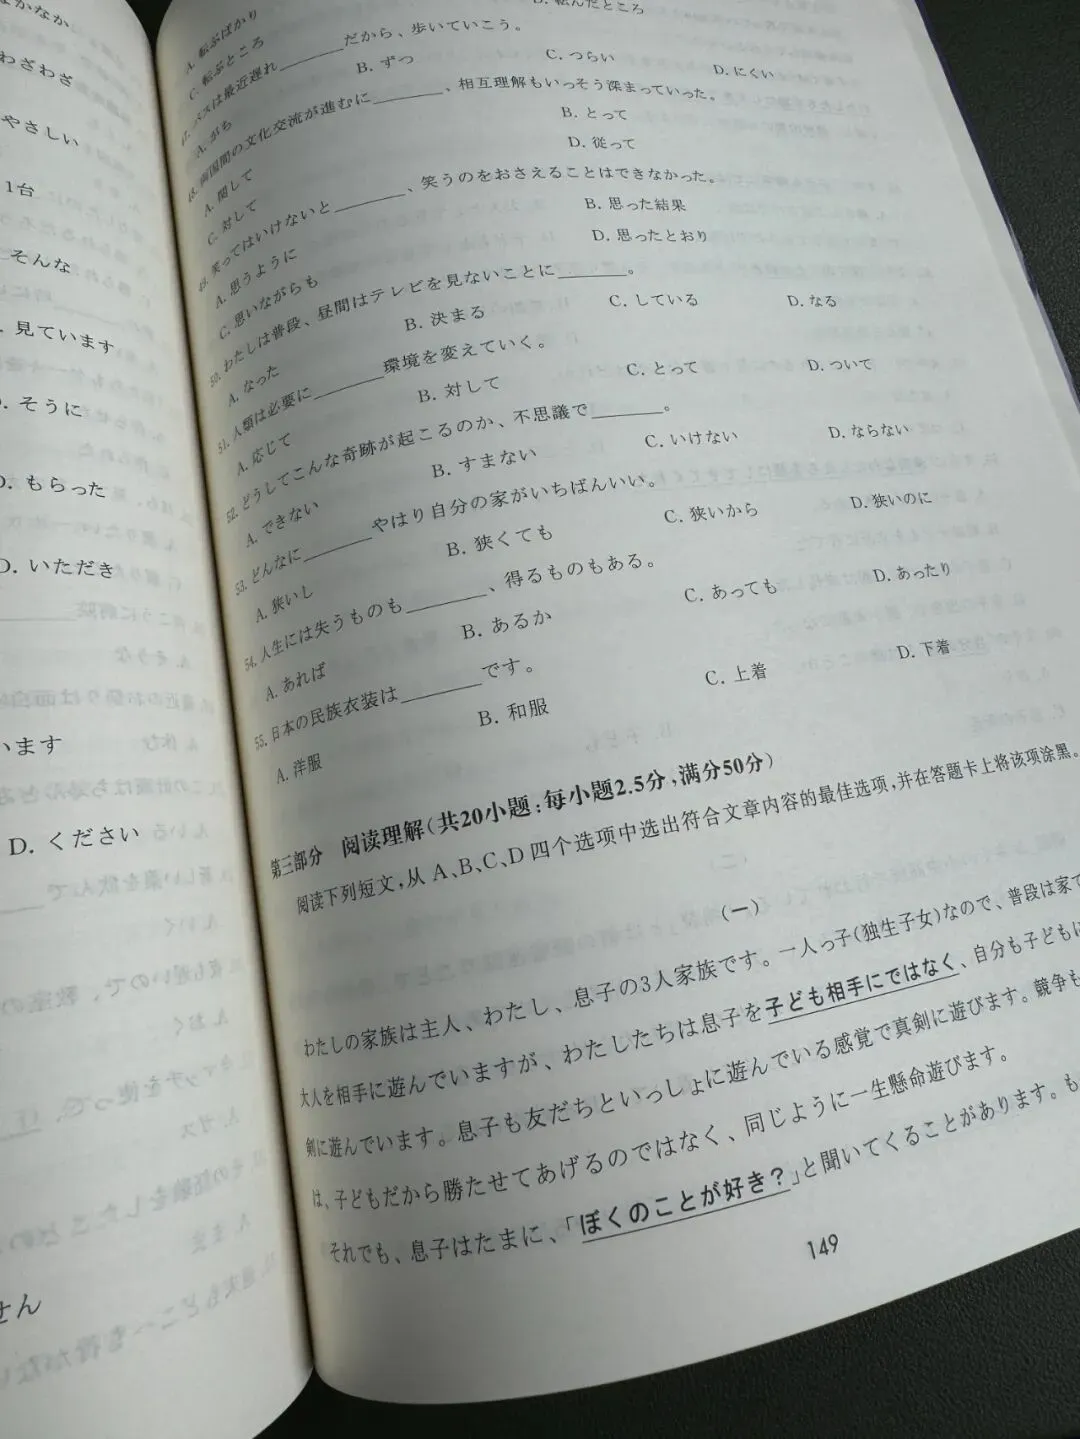 なかなか
わざわざ
やさしい
1台
そんな
見ています
そうに
D. もらった
D. いただき
います
D. ください
せん
A. 転ぶばかり
D. 転んだところ
C. 転ぶところ
47. バスは最近遅れ________だから、歩いていこう。
A. がち B. ずつ C. つらい D. にくい
48. 両国間の文化交流が進むに________、相互理解もいっそう深まっていった。
A. 関して B. とって
C. 対して D. 従って
49. 笑ってはいけないと________、笑うのをおさえることはできなかった。
A. 思うように B. 思った結果
C. 思いながらも D. 思ったとおり
50. わたしは普段、昼間はテレビを見ないことに________。
A. なった B. 決まる C. している D. なる
51. 人類は必要に________環境を変えていく。
A. 応じて B. 対して C. とって D. ついて
52. どうしてこんな奇跡が起こるのか、不思議で________。
A. できない B. すまない C. いけない D. ならない
53. どんなに________やはり自分の家がいちばんいい。
A. 狭いし B. 狭くても C. 狭いから D. 狭いのに
54. 人生には失うものも________、得るものもある。
A. あれば B. あるか C. あっても D. あったり
55. 日本の民族衣装は________です。
A. 洋服 B. 和服 C. 上着 D. 下着
第三部分 阅读理解(共20小题:每小题2.5分,满分50分)
阅读下列短文,从 A、B、C、D 四个选项中选出符合文章内容的最佳选项,并在答题卡上将该项涂黑。
(一)
わたしの家族は主人、わたし、息子の3人家族です。一人っ子(独生子女)なので、普段は家で
大人を相手に遊んでいますが、わたしたちは息子を子ども相手にではなく、自分も子どもに
剣に遊んでいます。息子も友だちといっしょに遊んでいる感覚で真剣に遊びます。競争も
は、子どもだから勝たせてあげるのではなく、同じように一生懸命遊びます。
それでも、息子はたまに、「ぼくのことが好き?」と聞いてくることがあります。も
149